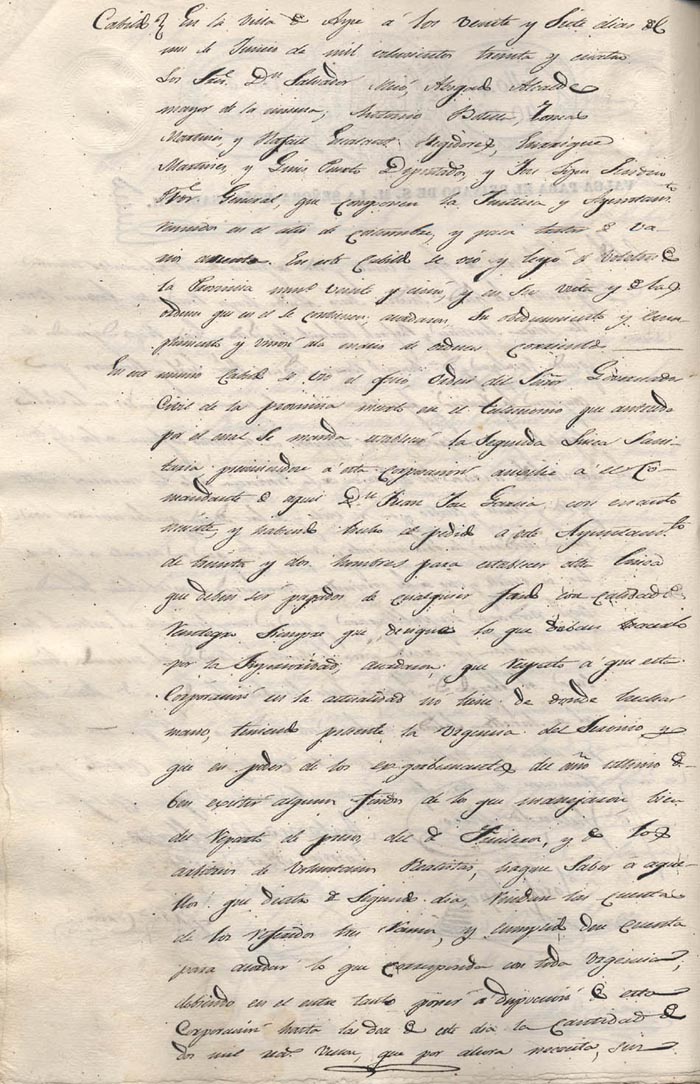 Cabildo En la villa de Aspe á los veinte y Siete dias del
mes de Junio de mil ochocientos treinta y cuatro
Los Sres. Dn. Salvador Miró, Abogado Alcalde
mayor de la misma, Antonio Botella, Tomas
Martinez, y Rafael Regidores, Enrrique
Martinez, y Gines Diputados, y Jose Sindico
Pror. General, que componen la Justicia y Ayuntamto.
reunidos en el sala de costumbre, y para tratar de va-
rios asuntos. En este Cabildo se vió y leyó el Voletin de
la Provincia numo. veinte y cinco, y en su vista y de las
ordenes que en el se contienen acordaron, Su obedecimiento y cum
plimiento y union al indice de ordenes corriente
En este mismo Cabildo se vio el oficio orden del Señor Governador
Civil de la provincia inserto en el testimonio que antecede
por el cual se manda establecer la Segunda linea Sani-
taria previniendose á esta corporacion ausilie á el Co-
mandante de aqui Dn. Juan Jose Garcia con cuanto
necesite, y habiendo hecho el pedido a este Ayuntamto.
de treinta y dos hombres para establecer dha linea
que deben ser pagados de cualquier fondo con calidad de
Reintegro Siempre que designe los que deban hacerlo
por la Superioridad, acordaron, que respecto á que esta
Corporacion en la actualidad no tiene de donde hechar
mano, teniendo presente la urgencia del Servicio y
que en poder de los ex-gobernantes del año ultimo de-
ben existir algunos fondos de lo que manejaron bien
del reparto de del de y de los
arbitrios de Voluntarios Realistas, hagase Saber a aque-
llos que dentro de Segundo dia, rindan las cuentas
de los referidos tres ramos, y cumplido den cuenta
para acordar lo que corresponda con toda urgencia,
debiendo en el entre tanto poner á disposicion de esta
Corporacion hasta las doce de este dia la cantidad de
dos mil rs. vellon, que por ahora necesita, sin